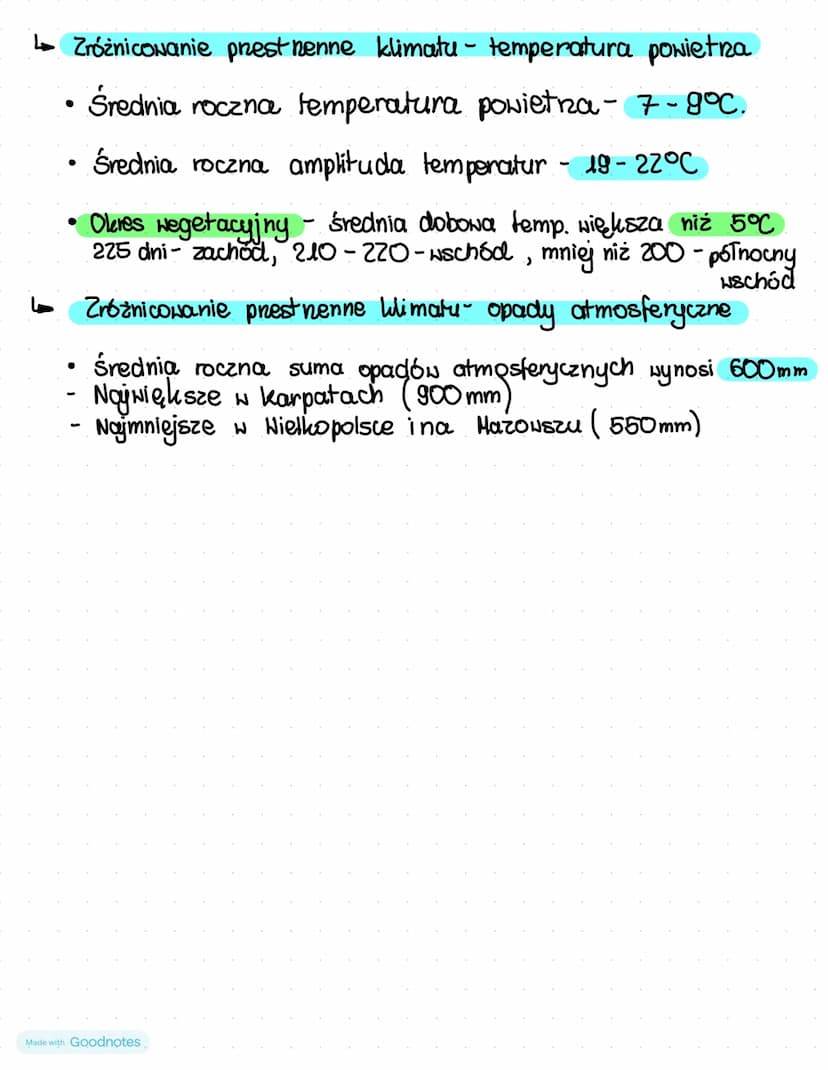 ↳ Zróżnicowanie przestrzenne klimatu - temperatura powietrza
• Średnia roczna temperatura powietrza - 7 - 9°C.
• Średnia roczna amplituda temperatur - 19 - 22°C
• Okres wegetacyjny - średnia dobowa temp. większa niż 5°C
225 dni - zachód, 210 - 220 - wschód, mniej niż 200 - północny
wschód
↳ Zróżnicowanie przestrzenne klimatu - opady atmosferyczne
• Średnia roczna suma opadów atmosferycznych wynosi 600mm
- Największe w Karpatach (900mm)
- Najmniejsze w Wielkopolsce i na Mazowszu (550mm)
Made with Goodnotes